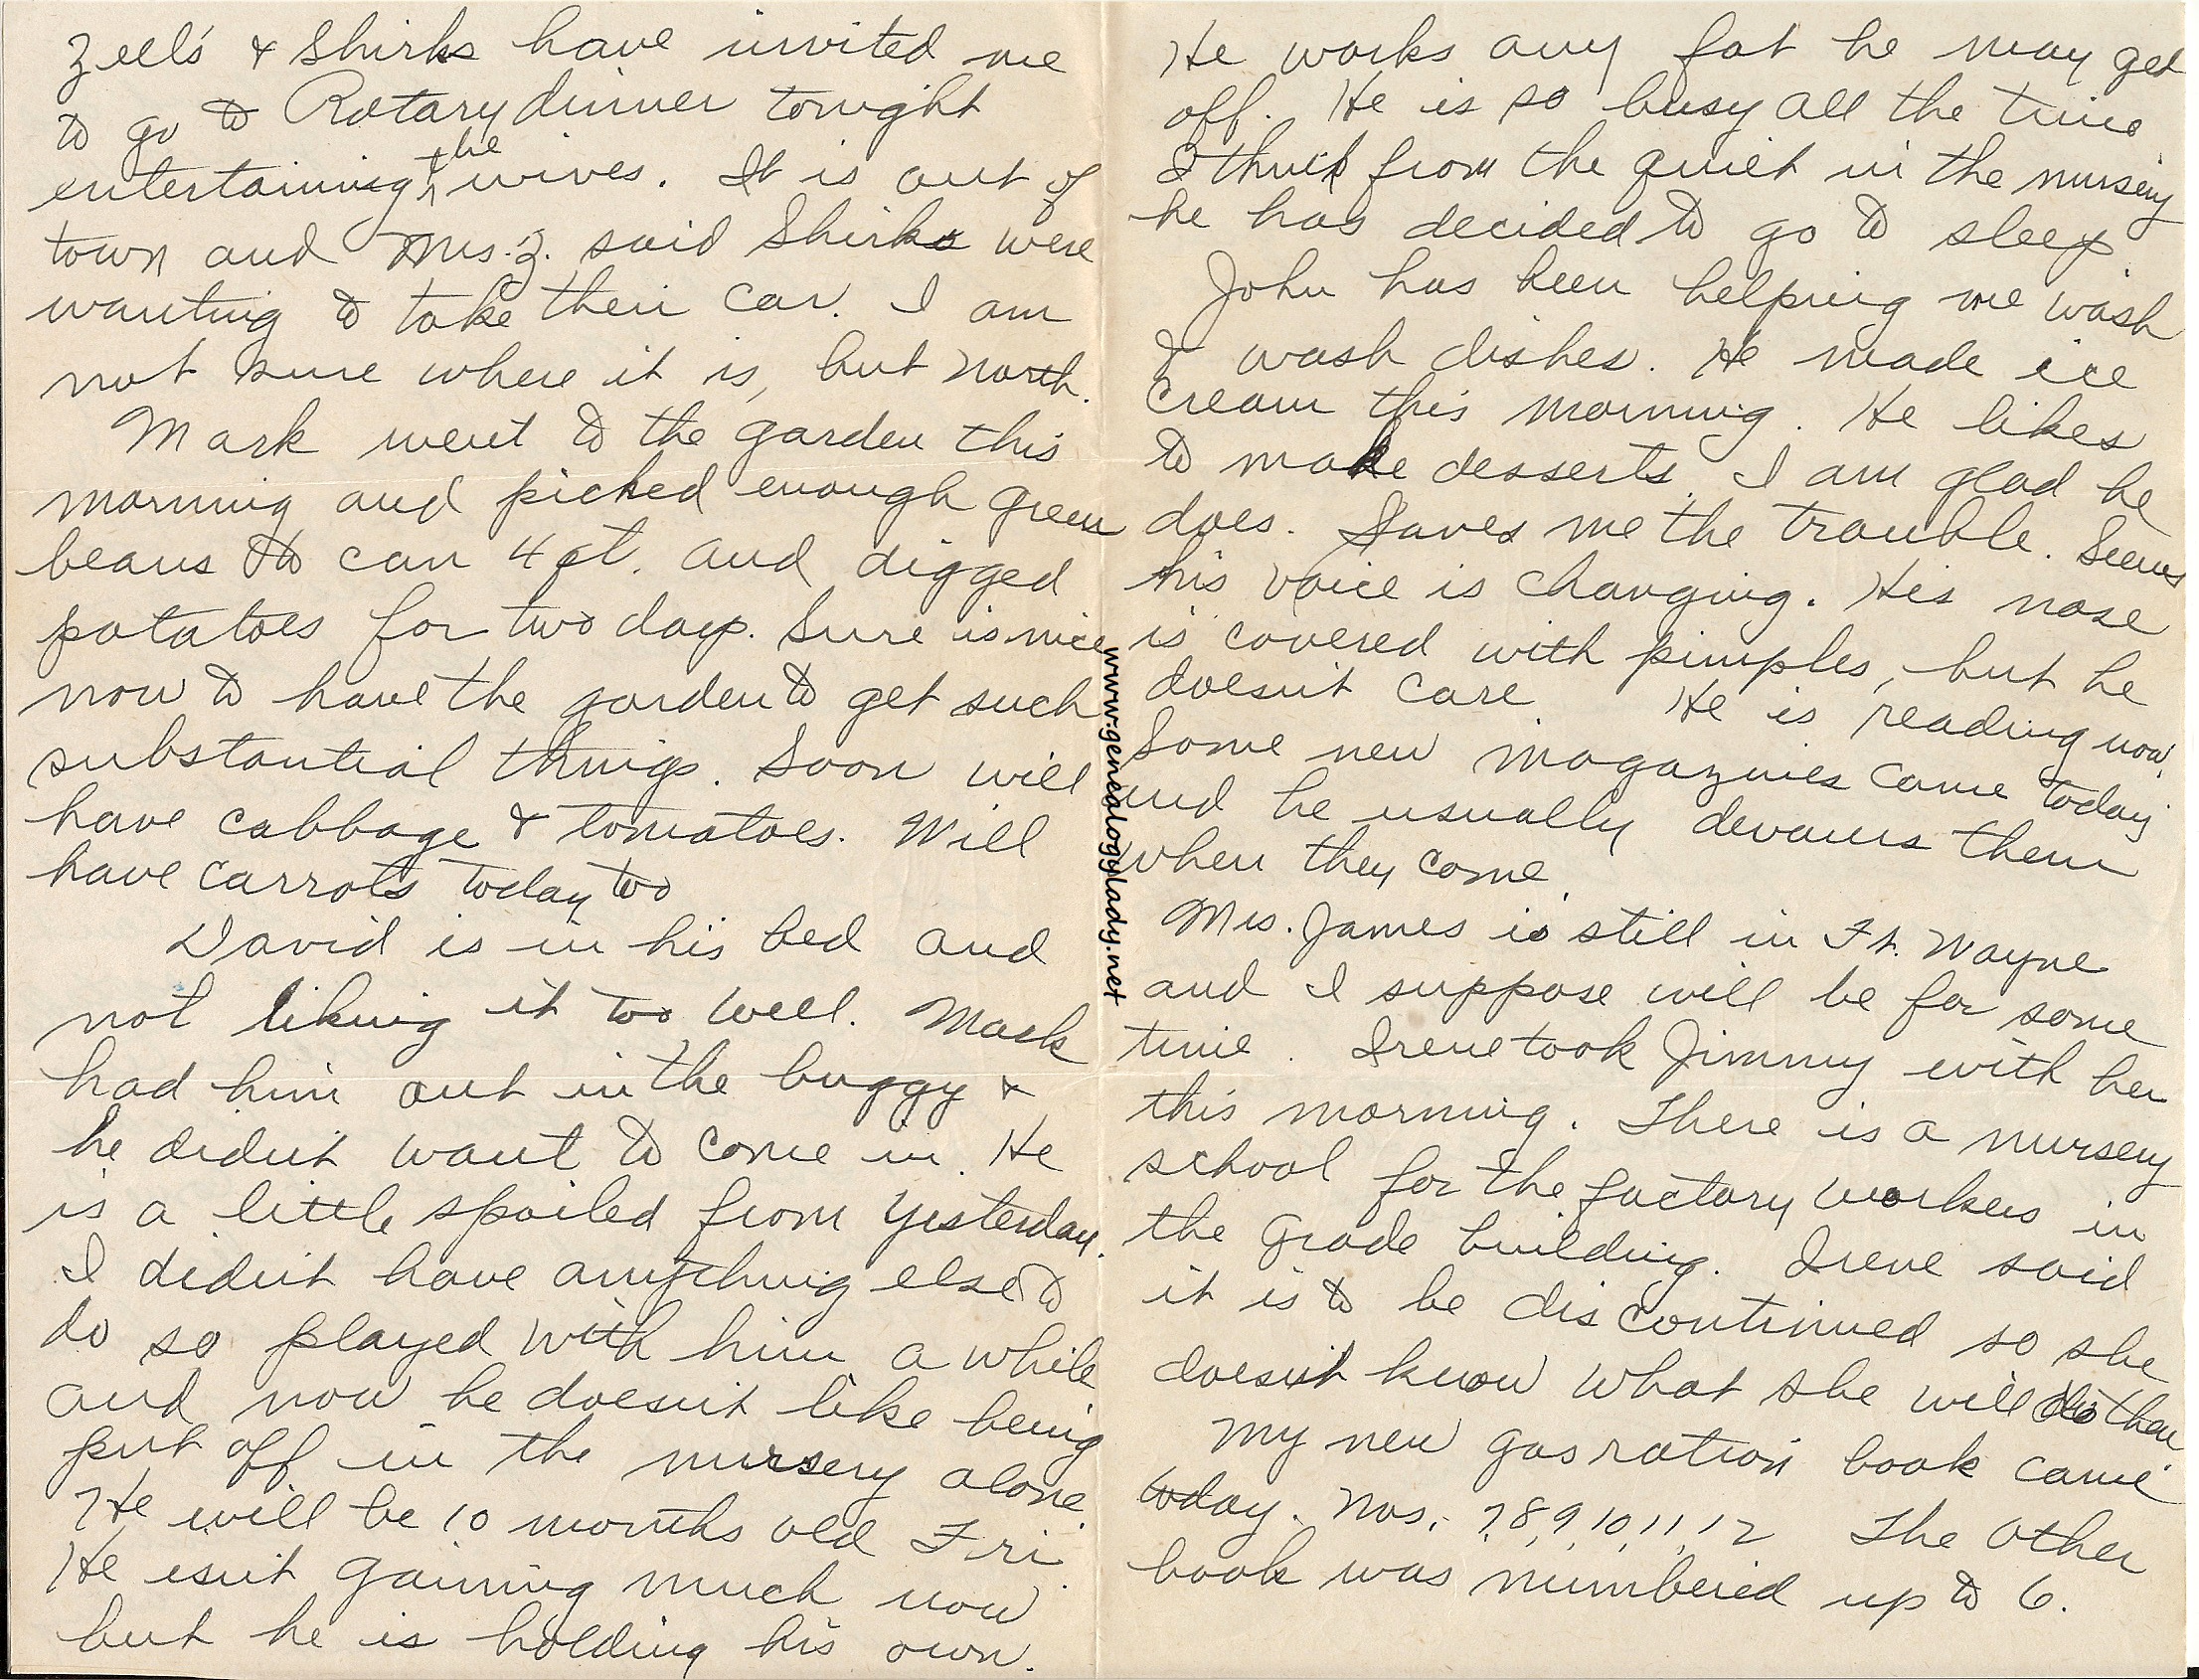 Zell's & Shirks have invited me
to go to Rotary dinner tonight
entertaining the wives. It is out of
town and Mrs. Z. said Shirks were
wanting to take their car. I am
not sure where it is, but north.
Mark went to the garden this
morning and picked enough green
beans to can 4 qt. and digged
potatoes for two days. Sure is nice
now to have the garden to get such
substantial things. Soon will
have cabbage & tomatoes. Will
have carrots today too
David is in his bed and
not liking it too well. Mark
had him out in the buggy &
he didn't want to come in. He
is a little spoiled from yesterday.
I didn't have anything else to
do so played with him a while
and now he doesn't like being
put off in the nursery alone.
He will be 10 months old Fri.
He isn't gaining much now
but he is holding his own.
He works any fat he may get
off. He is so busy all the time
I think from the quiet in the nursery
he has decided to go to sleep.
John has been helping me wash
& wash dishes. He made ice
cream this morning. He likes
to make desserts. I am glad he
does. Saves me the trouble. Seems
his voice is changing. His nose
is covered with pimples, but he
doesn't care. He is reading now.
Some new magazines came today
and he usually devours them
when they come.
Mrs. James is still in Ft. Wayne
and I suppose will be for some
time. Irene took Jimmy with her
this morning. There is a nursery
school for the factory workers in
the grade building. Irene said
it is to be discontinued so she
doesn't know what she will do then
My new gas ration book came
today. Nos. 7, 8, 9, 10, 11, 12 The other
book was numbered up to 6.
www.genealogylady.net